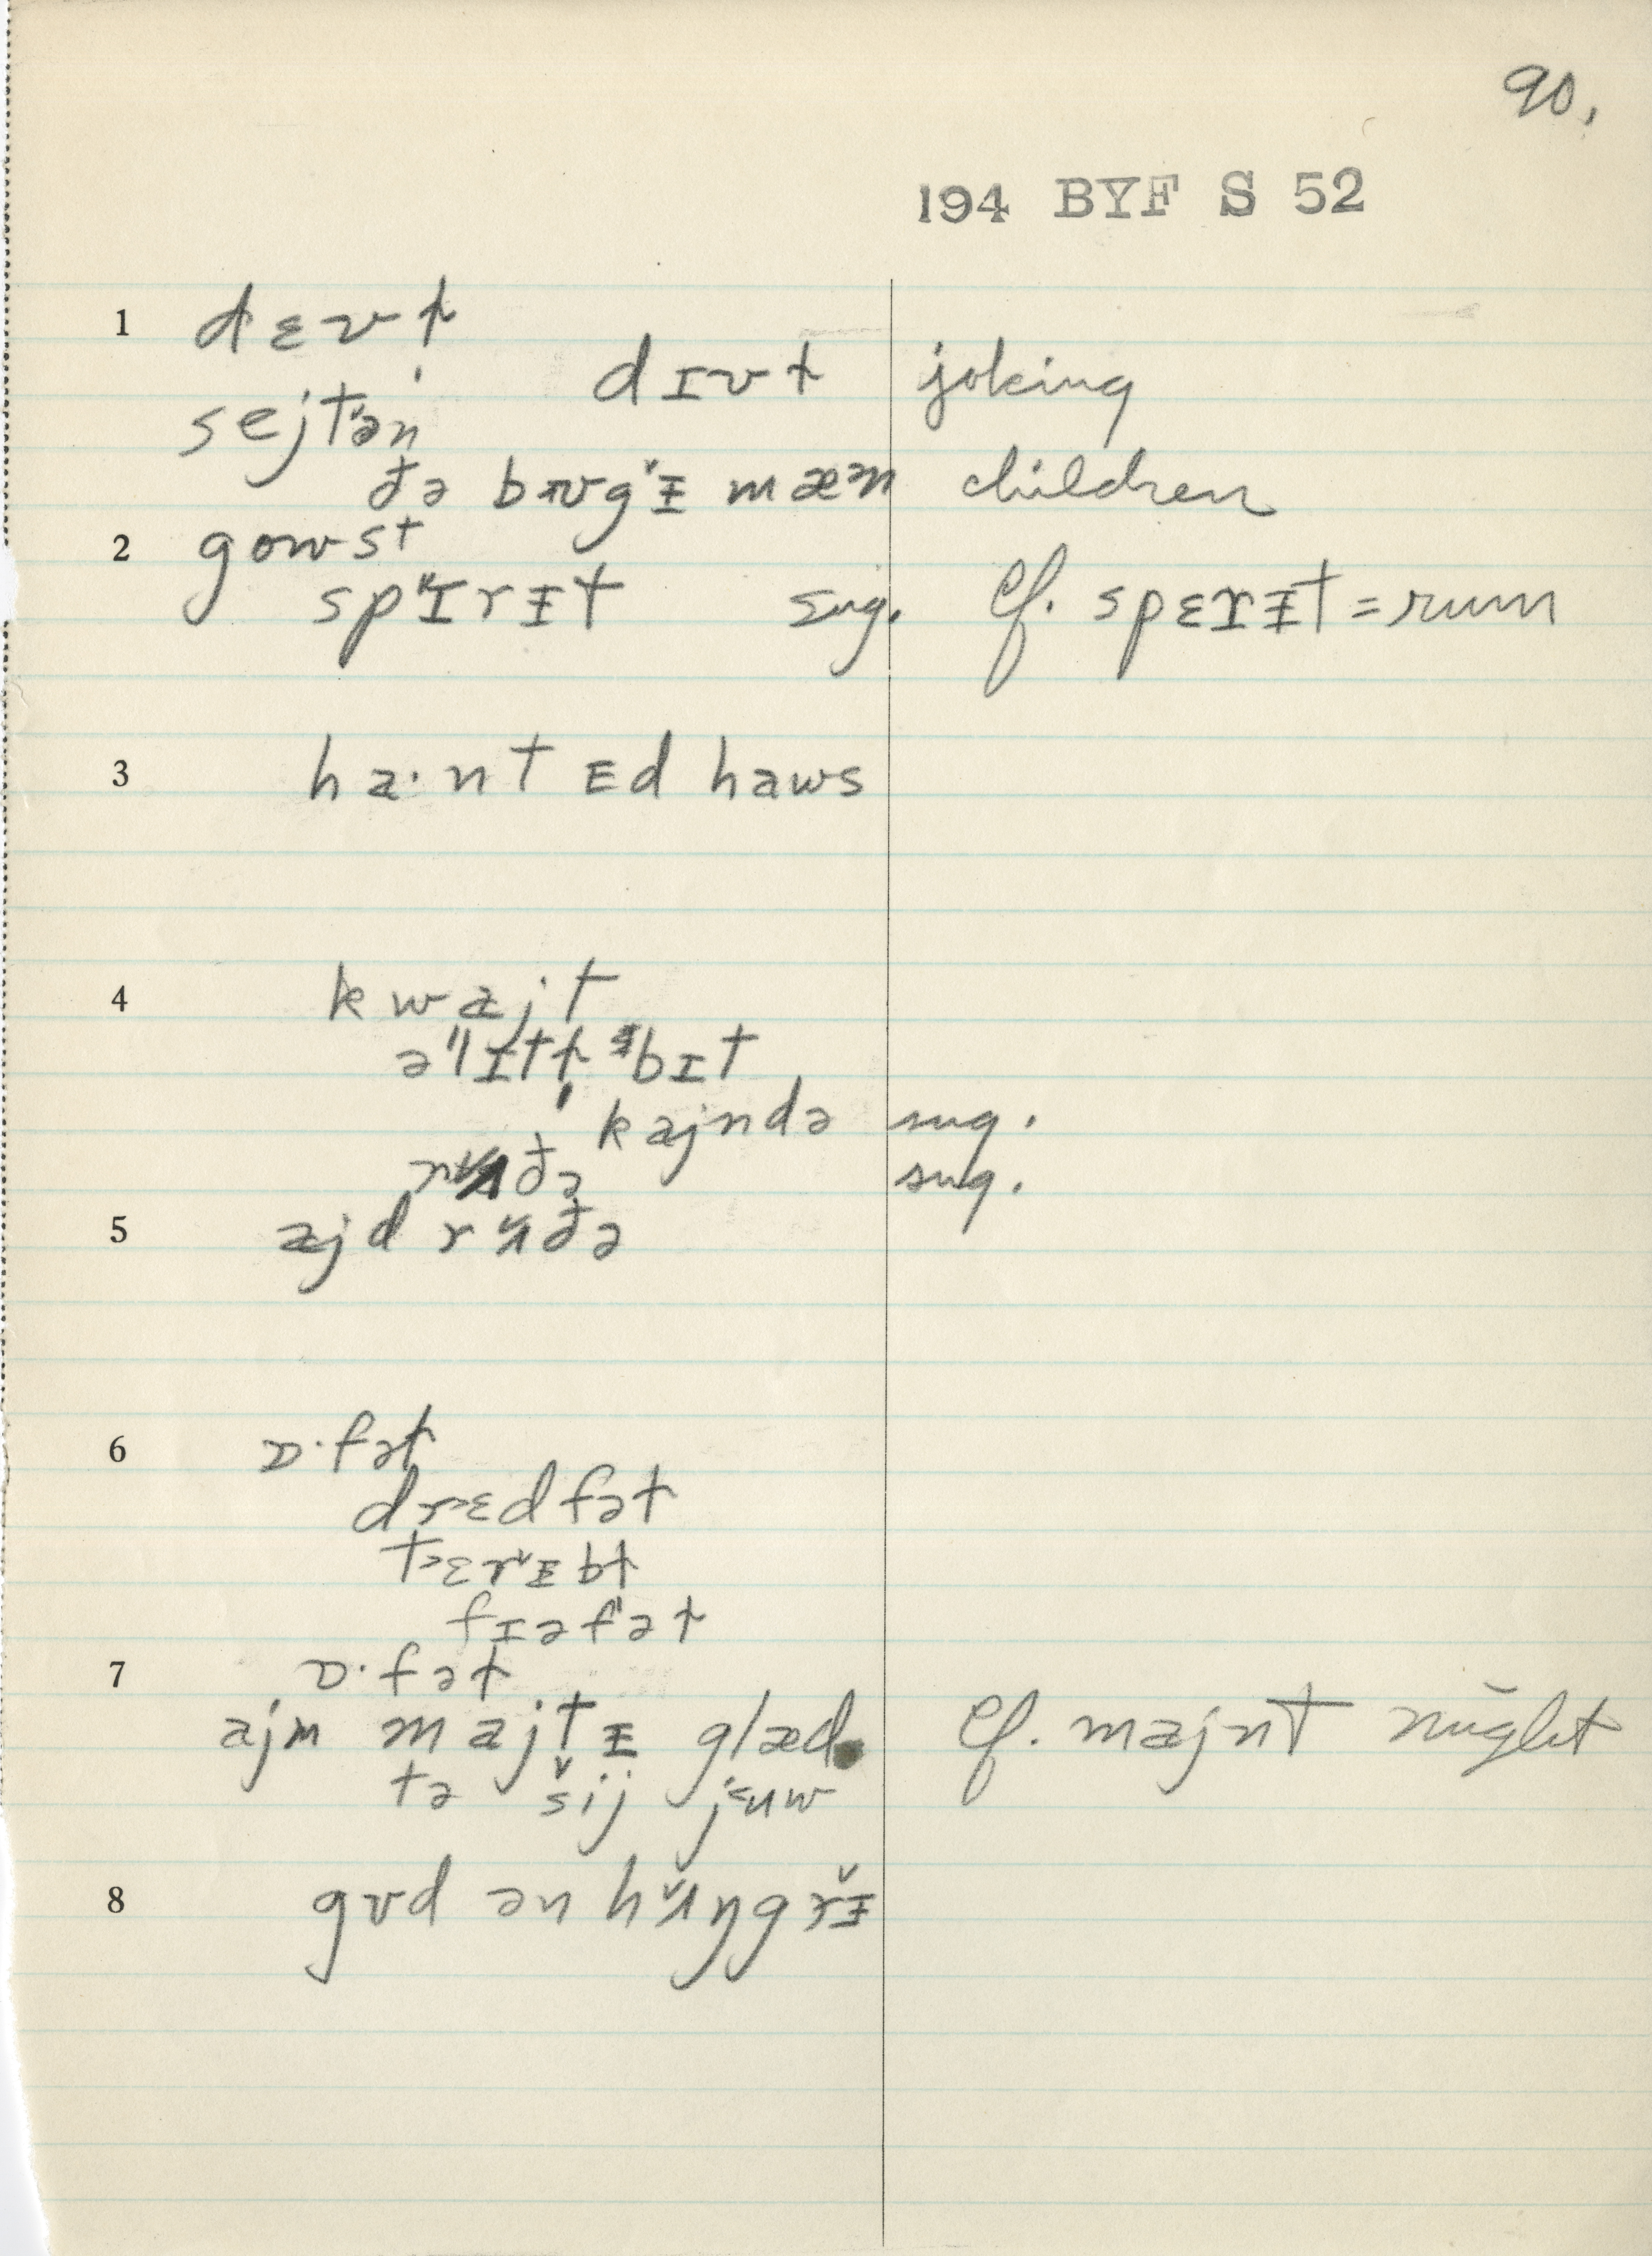 90.
194 BYF S 52
1 dɛvɫ
dɪvɫ joking
sejtən
ðə bʊgᵻ mæn children
2 gowst
spɪrᵻt sug. Cf. spɛrᵻt = rum
3 ha·ntᴇd haws
4 kwajt
əlɪtɫ bɪt
kajndə sug.
rʌðə sug.
5 ajd rʌðə
6 ɒ·fəɫ
drɛdfəɫ
tɛrᵻbɫ
fɪəfəɫ
7 ɒ·fəɫ
ajm majtᵻ glæd. Cf. majnt might
tə šij juw
8 gʊd ən hʌŋgrᵻ